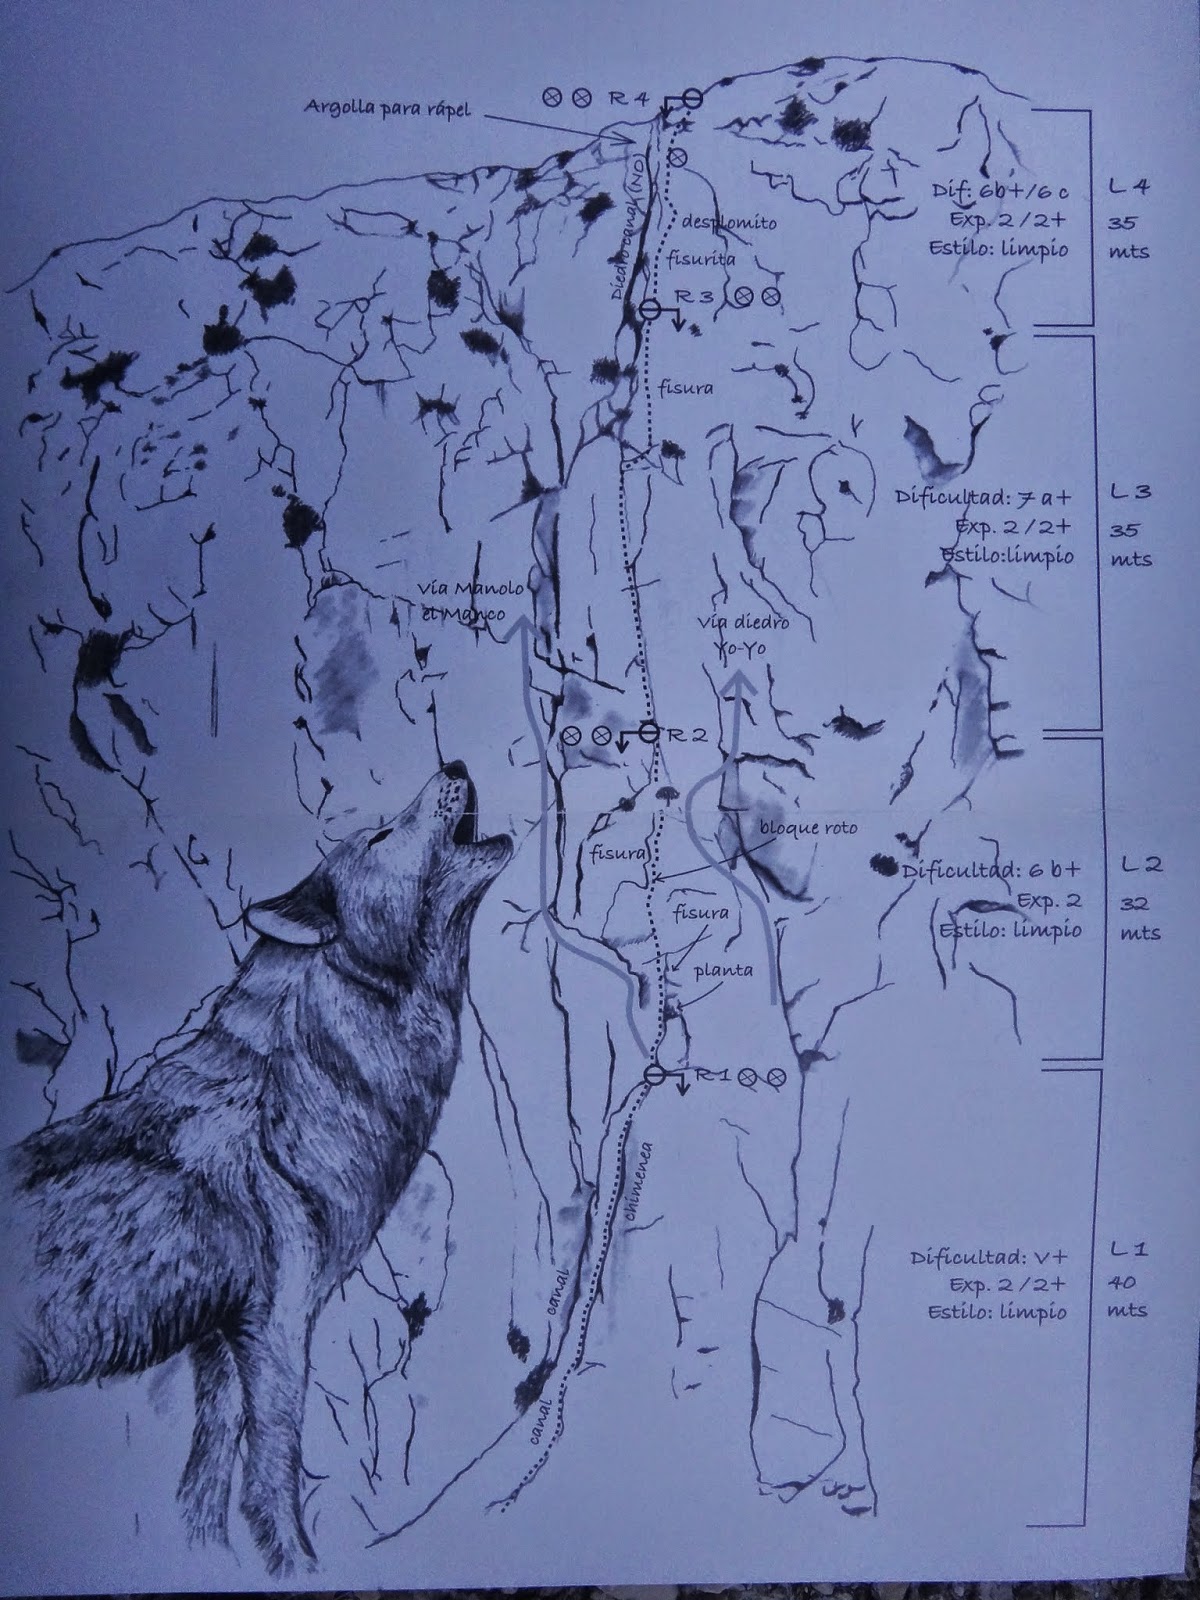 Argolla para rápel
R 4
Diedro canal (NO)
desplomito
fisurita
Dif: 6b+/6c
Exp. 2/2+
Estilo: limpio
L 4
35
mts
R 3
fisura
Dificultad: 7a+
Exp. 2/2+
Estilo:limpio
L 3
35
mts
vía Manolo
el Manco
vía diedro
Yo-Yo
R 2
bloque roto
fisura
fisura
planta
Dificultad: 6b+
Exp. 2
Estilo: limpio
L 2
32
mts
R 1
chimenea
canal
canal
Dificultad: V+
Exp. 2/2+
Estilo: limpio
L 1
40
mts